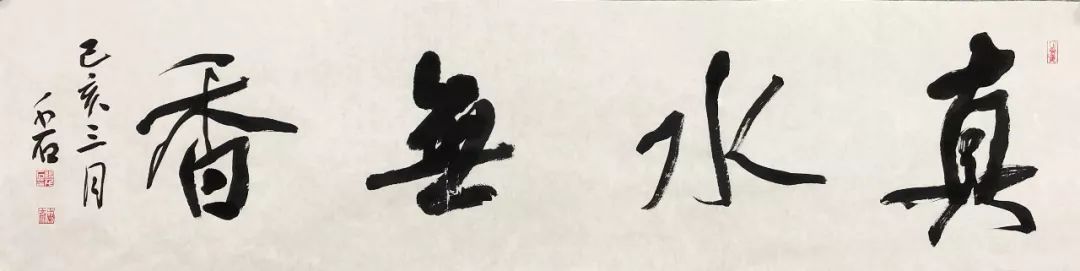 真水無香
己亥三月
石